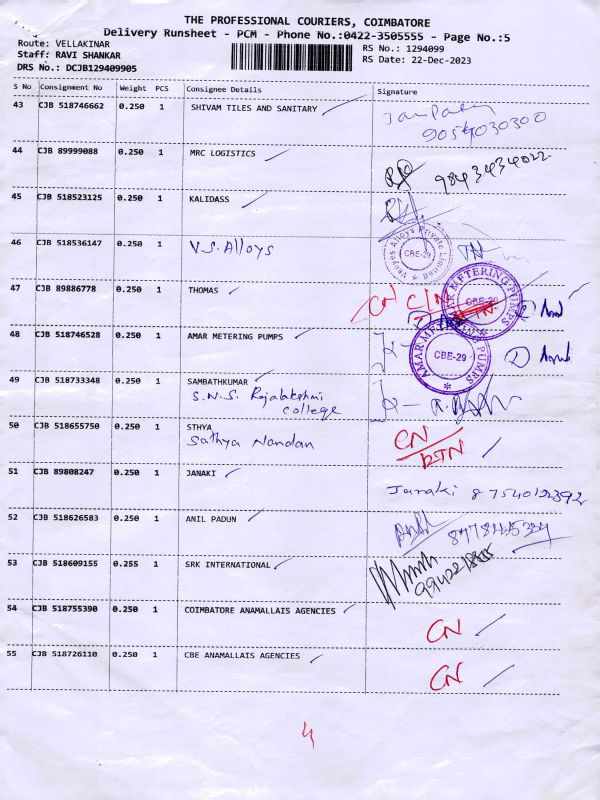 THE PROFESSIONAL COURIERS, COIMBATORE
Delivery Runsheet - PCM - Phone No.:0422-3505555 - Page No.:5
Route: VELLAKINAR
Staff: RAVI SHANKAR
DRS No.: DCJB129409905
RS No.: 1294099
RS Date: 22-Dec-2023
S No Consignment No Weight PCS Consignee Details Signature
43 CJB 518746662 0.250 1 SHIVAM TILES AND SANITARY
9054030300
44 CJB 89999088 0.250 1 MRC LOGISTICS
9843434022
45 CJB 518523125 0.250 1 KALIDASS
46 CJB 518536147 0.250 1 V.S. Alloys
Alloys Private Limited
CBE-29
47 CJB 89886778 0.250 1 THOMAS
CN
AMAR METERING PUMPS
CBE-29
48 CJB 518746528 0.250 1 AMAR METERING PUMPS
AMAR METERING PUMPS
CBE-29
49 CJB 518733348 0.250 1 SAMBATHKUMAR
S.N.S. Rajalakshmi
college
50 CJB 518655750 0.250 1 STHYA
Sathya Nandan
CN
RTN
51 CJB 89808247 0.250 1 JANAKI
Janaki 8754012392
52 CJB 518626583 0.250 1 ANIL PADUN
53 CJB 518609155 0.255 1 SRK INTERNATIONAL
54 CJB 518755390 0.250 1 COIMBATORE ANAMALLAIS AGENCIES
CN
55 CJB 518726110 0.250 1 CBE ANAMALLAIS AGENCIES
CN
4